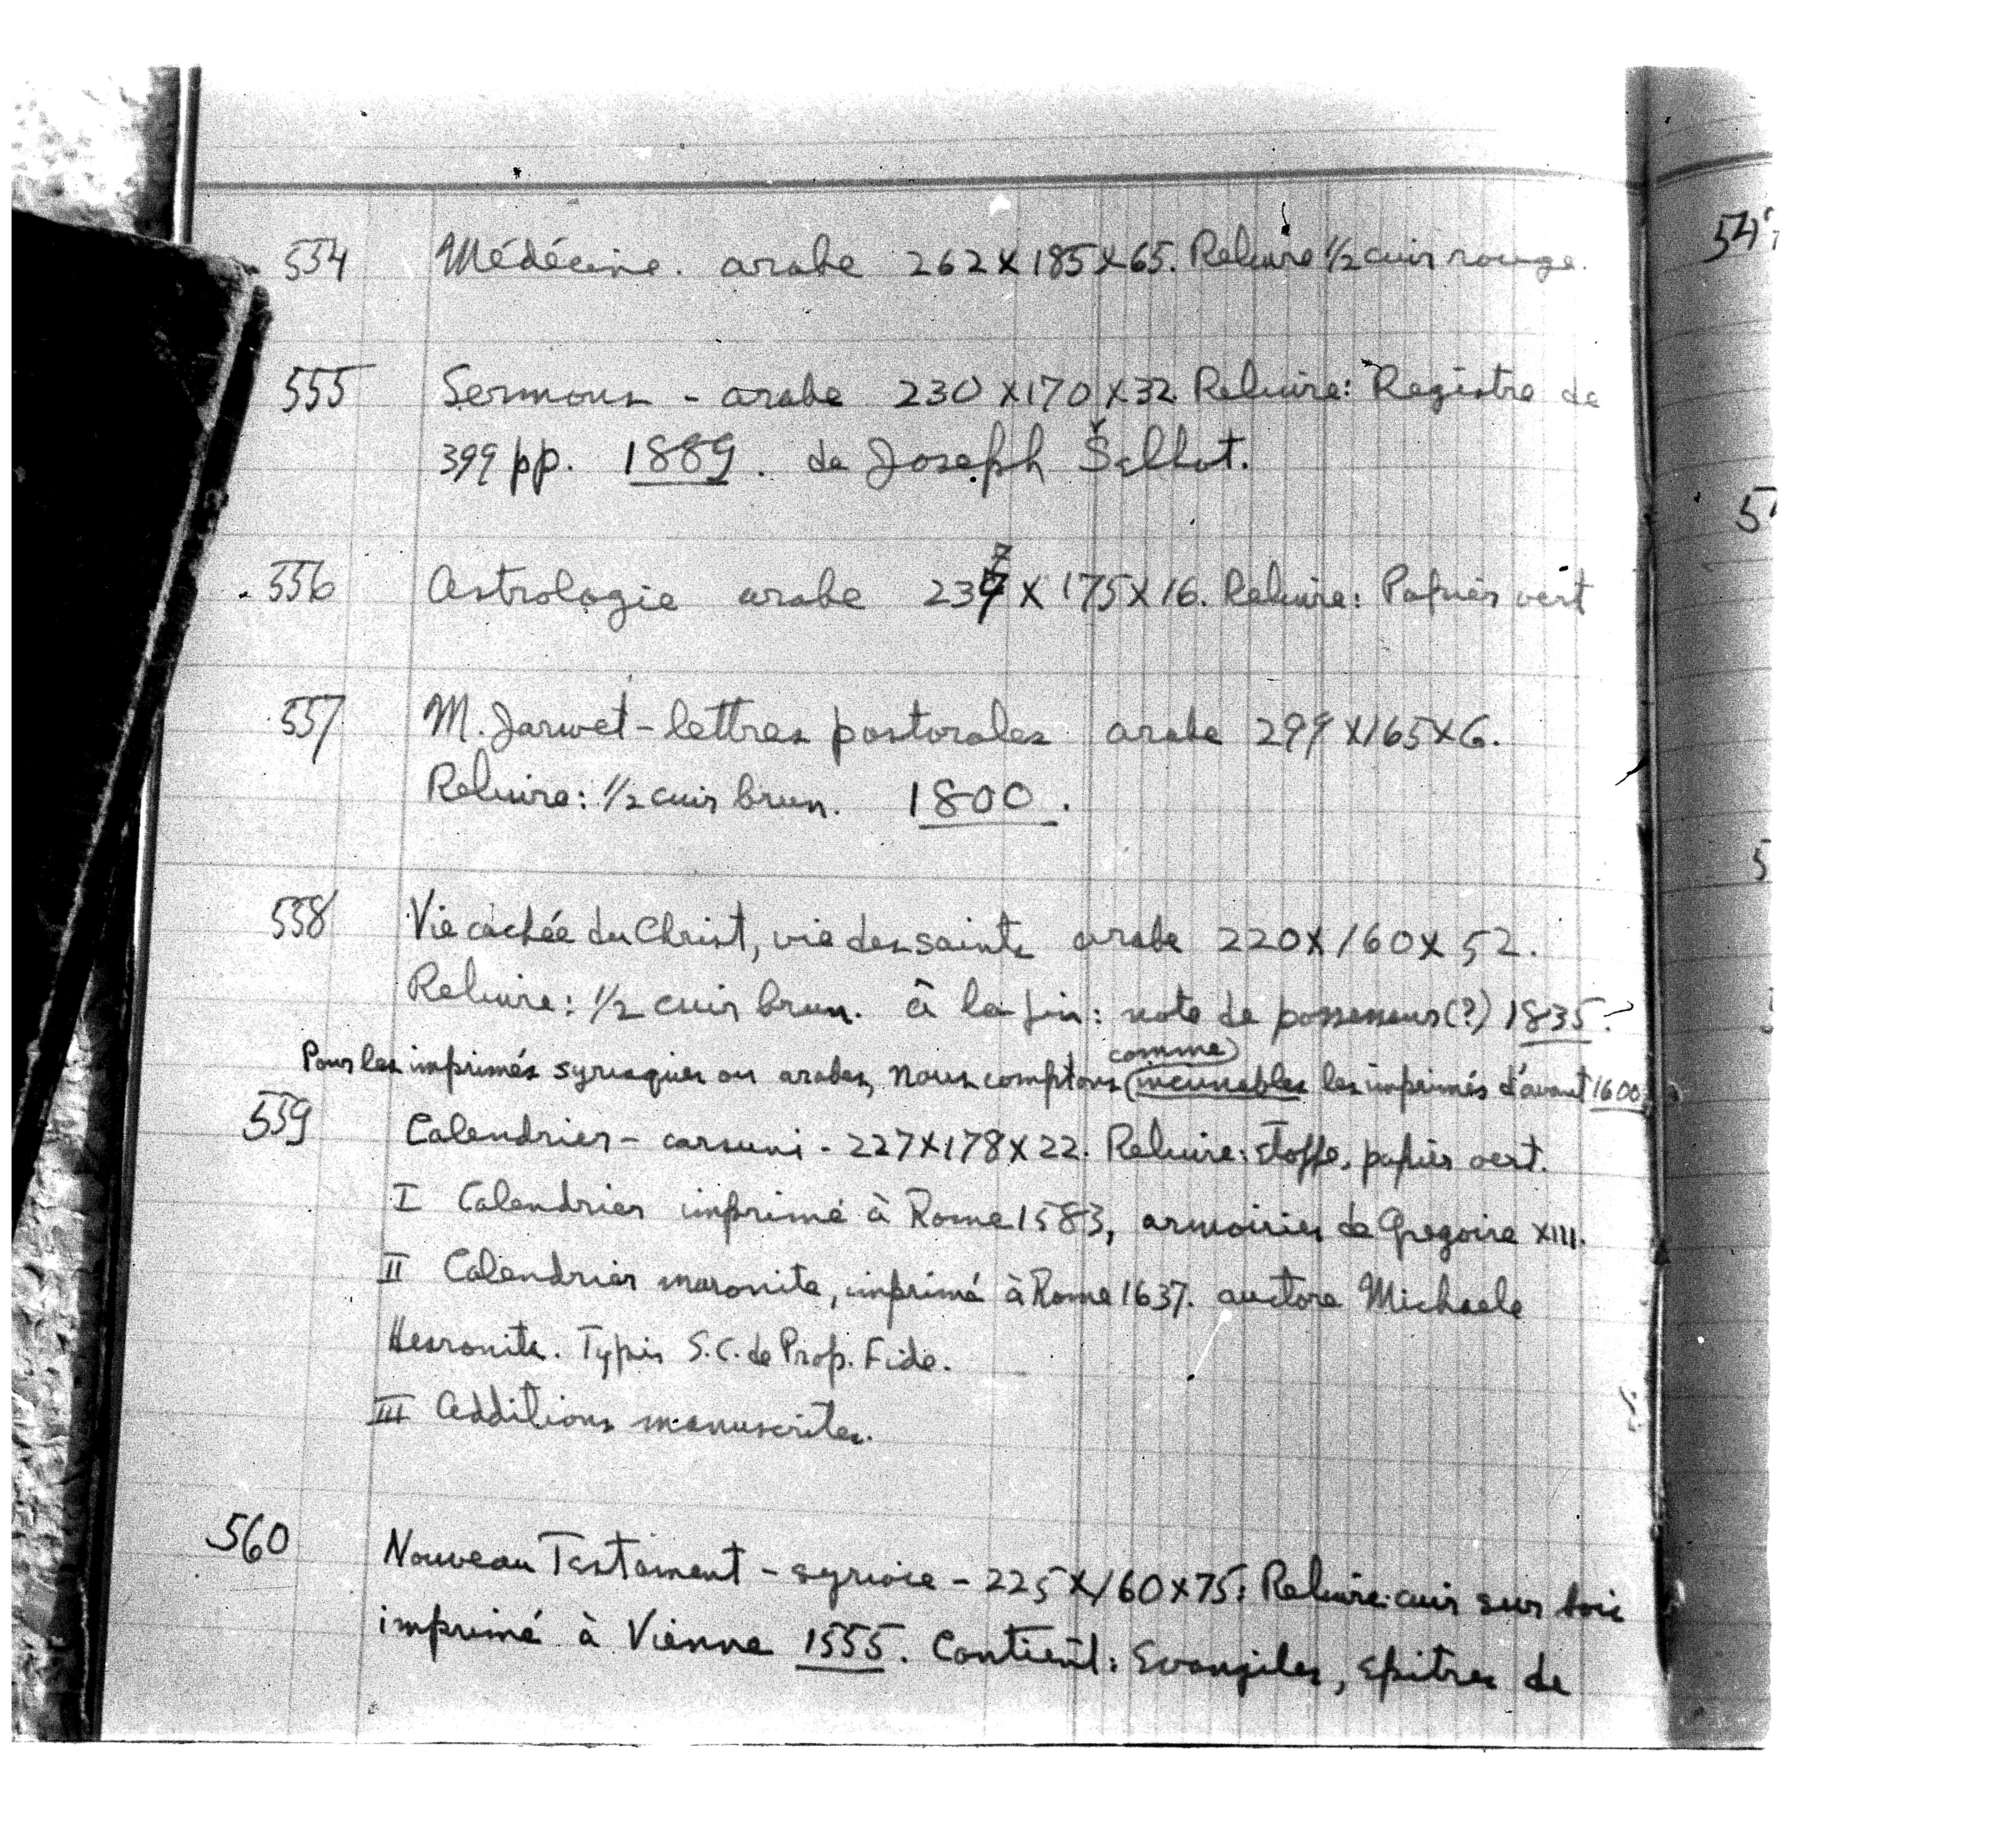 554 Médécine. arabe 262 x 185 x 65. Reliure 1/2 cuir rouge.
555 Sermons - arabe 230 x 170 x 32. Reliure: Registre de
399 pp. 1889. de Joseph Šelhot.
556 Astrologie arabe 237 x 175 x 16. Reliure: Papier vert
7
557 M. Jarwet - lettres pastorales arabe 299 x 165 x 6.
Reliure: 1/2 cuir brun. 1800.
558 Vie cachée du Christ, vie des saints arabe 220 x 160 x 52.
Reliure: 1/2 cuir brun. à la fin: note de possesseur (?) 1835.
Pour les imprimés syriaques ou arabes, nous comptons comme incunables les imprimés d'avant 1600
559 Calendrier - carsuni - 227 x 178 x 22. Reliure: étoffe, papier vert.
I Calendrier imprimé à Rome 1583, armoiries de Gregoire XIII.
II Calendrier maronite, imprimé à Rome 1637. auctore Michaele
Hesronita. Typis S.C. de Prop. Fide.
III Additions manuscrites.
560 Nouveau Testament - syriaque - 225 x 160 x 75: Reliure: cuir sur bois
imprimé à Vienne 1555. Contient: Evangiles, epitres de
54
5
5